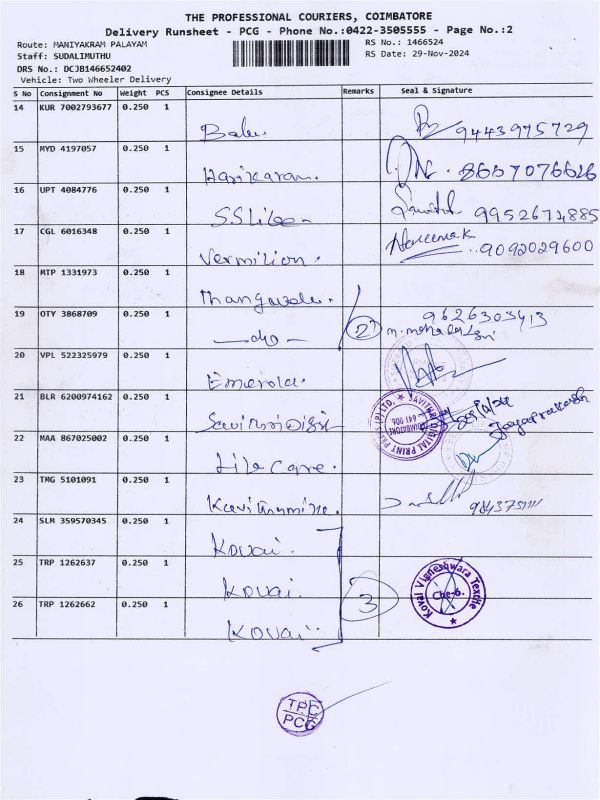 THE PROFESSIONAL COURIERS, COIMBATORE
Delivery Runsheet - PCG - Phone No.:0422-3505555 - Page No.:2
Route: MANIYAKRAM PALAYAM RS No.: 1466524
Staff: SUDALIMUTHU RS Date: 29-Nov-2024
DRS No.: DCJB146652402
Vehicle: Two Wheeler Delivery
S No Consignment No Weight PCS Consignee Details Remarks Seal & Signature
14 KUR 7002793677 0.250 1
Babu. 9443975729
15 MYD 4197057 0.250 1
Harikaran. 8667076626
16 UPT 4084776 0.250 1
9952674885
17 CGL 6016348 0.250 1
Vermilion. 9092029600
18 MTP 1331973 0.250 1
19 OTY 3868709 0.250 1 9626303413
-do- 2
20 VPL 522325979 0.250 1
21 BLR 6200974162 0.250 1
Jayaprakash
22 MAA 867025002 0.250 1
Life Care.
23 TMG 5101091 0.250 1
24 SLM 359570345 0.250 1
Kovai.
25 TRP 1262637 0.250 1
Kovai. 3
26 TRP 1262662 0.250 1
Kovai.
Kovai Vigneshwara Textile
Cbe-6.
TPC
PCG